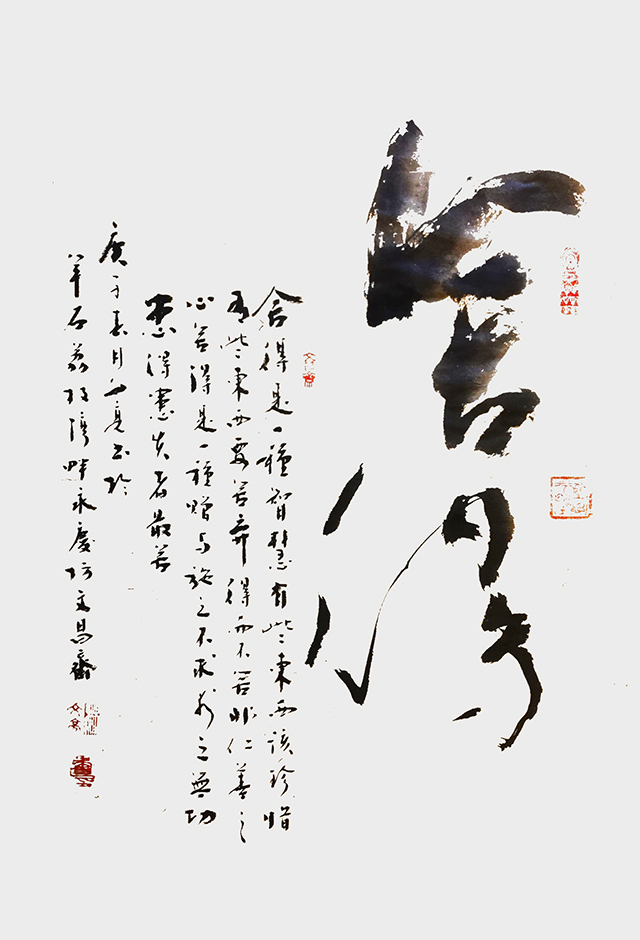 舍得
舍得是一種智慧有些東西該珍惜
有些東西要舍弃得而不舍非仁善之
心舍得是一種赠与施之不求之無功
患得患失者最苦
庚子春月书於
羊石荔枝湾畔永慶坊文昌齋